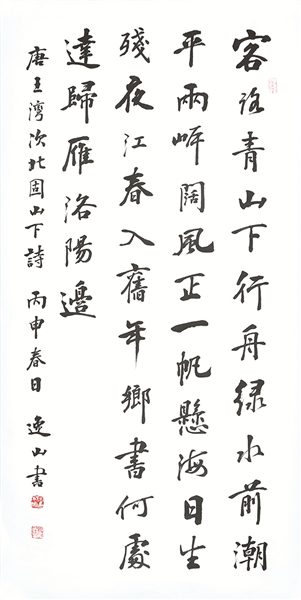 客路青山下行舟綠水前潮
平兩岸闊風正一帆懸海日生
殘夜江春入舊年鄉書何處
達歸雁洛陽邊
唐王灣次北固山下詩 丙申春日 逸山書